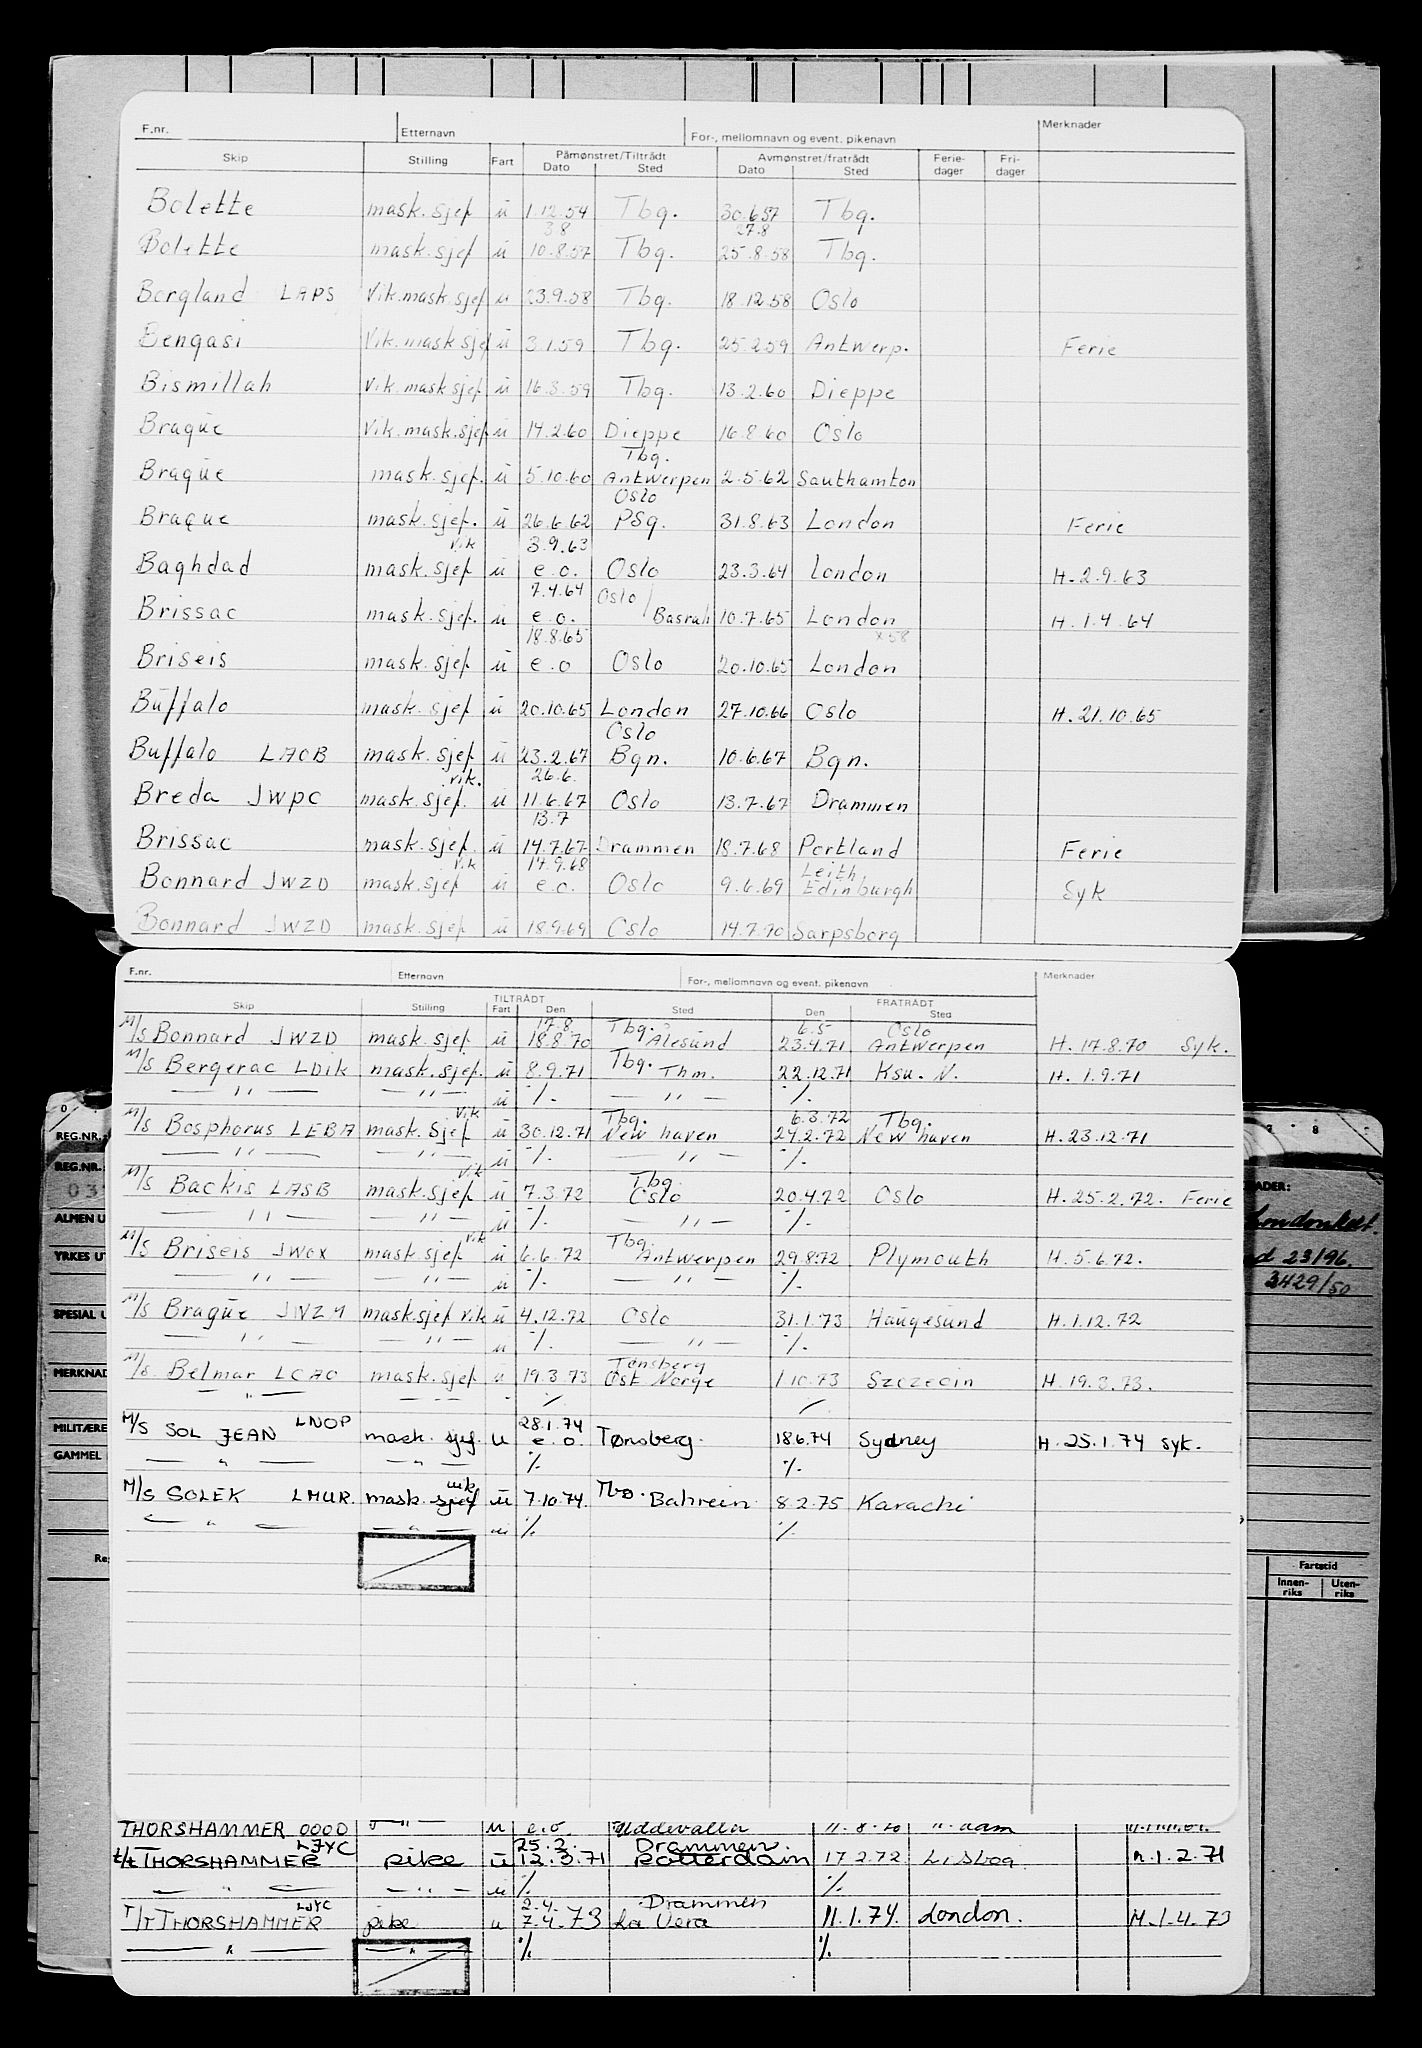 F.nr. Etternavn For-, mellomnavn og event. pikenavn Merknader
Skip Stilling Fart Påmønstret/Tiltrådt Dato Sted Avmønstret/fratrådt Dato Sted Ferie-dager Fri-dager
Bolette mask.sjef u 1.12.54 Tbg. 30.6.57 Tbg.
3.8 27.8
Bolette mask.sjef u 10.8.57 Tbg. 25.8.58 Tbg.
Borgland LAPS Vik.mask.sjef u 23.9.58 Tbg. 18.12.58 Oslo
Bengasi Vik.mask sjef u 3.1.59 Tbg. 25.2.59 Antwerp. Ferie
Bismillah Vik.mask sjef u 16.3.59 Tbg. 13.2.60 Dieppe
Braque Vik.mask.sjef u 14.2.60 Dieppe 16.8.60 Oslo
Tbg.
Braque mask.sjef. u 5.10.60 Antwerpen 2.5.62 Southamton
Oslo
Braque mask.sjef. u 26.6.62 PSg. 31.8.63 London Ferie
vik 3.9.63
Baghdad mask.sjef u e.o. Oslo 23.3.64 London H.2.9.63
7.4.64 Oslo /
Brissac mask.sjef. u e.o. Basrah 10.7.65 London H.1.4.64
18.8.65 x58
Briseis mask.sjef u e.o Oslo 20.10.65 London
Buffalo mask.sjef u 20.10.65 London 27.10.66 Oslo H.21.10.65
Oslo
Buffalo LAOB mask.sjef u 23.2.67 Bgn. 10.6.67 Bgn.
vik. 26.6.
Breda JWPC mask.sjef. u 11.6.67 Oslo 13.7.67 Drammen
13.7
Brissac mask.sjef. u 14.7.67 Drammen 18.7.68 Portland Ferie
vik 17.9.68 Leith
Bonnard JWZD mask.sjef u e.o. Oslo 9.6.69 Edinburgh Syk
Bonnard JWZD mask.sjef u 18.9.69 Oslo 14.7.70 Sarpsborg
F.nr. Etternavn For-, mellomnavn og event. pikenavn Merknader
Skip Stilling TILTRÅDT Fart Den Sted FRATRÅDT Den Sted
17.8 Tbg. 6.5 Oslo
M/S Bonnard JWZD mask.sjef u 18.8.70 Ålesund 23.4.71 Antwerpen H.17.8.70 Syk.
M/S Bergerac LDIK mask.sjef. u 8.9.71 Tbg. Thm. 22.12.71 Ksu. N. H.1.9.71
— " — — " — u % — " — %
vik Tbg. 6.3.72 Tbg.
M/S Bosphorus LEBA mask.sjef u 30.12.71 New haven 24.2.72 New haven H.23.12.71
— " — — " — u % — " — %
vik Tbg
M/S Backis LASB mask.sjef u 7.3.72 Oslo 20.4.72 Oslo H.25.2.72. Ferie
— " — — " — u % — " — %
vik Tbg.
M/S Briseis JWOX mask.sjef u 6.6.72 Antwerpen 29.8.72 Plymouth H.5.6.72.
— " — — " — u % — " — %
M/S Braque mask.sjef vik u 4.12.72 Oslo 31.1.73 Haugesund H.1.12.72
— " — — " — u % — " — %
Tønsberg
M/S. Belmar LCAO mask.sjef u 19.3.73 Øst Norge 1.10.73 Szczecin H.19.3.73.
— " — — " — " % %
LNOP 28.1.74
M/S SOL JEAN mask. sjef. u e.o. Tønsberg. 18.6.74 Sydney H.25.1.74 syk.
— " — — " — % %
vik
M/S SOLEK LMUR. mask.sjef u 7.10.74. Tbg. Bahrein 8.2.75 Karachi
— " — — " — u % %
THORSHAMMER OOOD — " — u e.o Uddevalla 11.8.70
LJYC 25.2. Drammen
t/t THORSHAMMER pike u 12.3.71 Rotterdam 17.2.72 Lisboa H.1.2.71
— " — — " — u % %
LJYC 2.4. Drammen
T/T THORSHAMMER pike u 7.4.73 La Vera 11.1.74. London. H.1.4.73
— " — — " — % %
REG.NR.
REG.NR.
03
ALMEN U
YRKES UT
SPESIAL U
MERKNAD
MILITÆRE
GAMMEL
Re
ADER:
23/96.
3429/50
Fartstid
Innen-riks Uten-riks